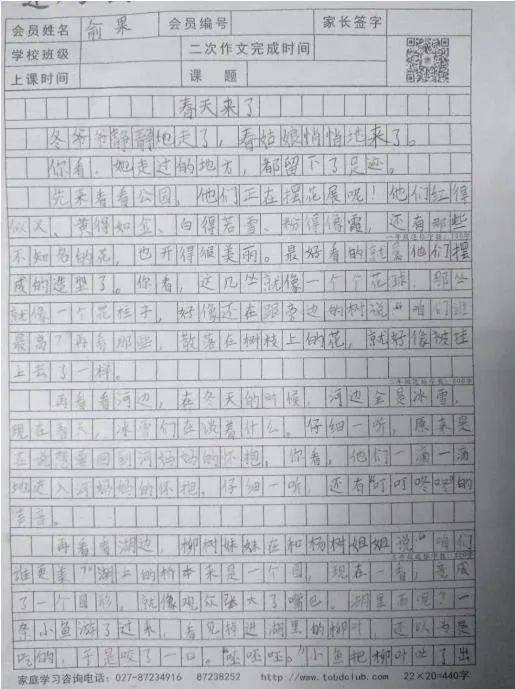 会员姓名 俞果 会员编号 家长签字
学校班级 二次作文完成时间
上课时间 课 题
春天来了
冬爷爷静静地走了，春姑娘悄悄地来了。
你看，她走过的地方，都留下了足迹。
先来看看公园，他们正在摆花展呢！他们红得
似火、黄得如金、白得若雪、粉得像霞，还有那些
不知名的花，也开得很美丽。最好看的就是他们摆
成的造型了。你看，这几丛就像一个个花球，那丛
就像一个花柱子，好像还在跟旁边的树说“咱们谁
最高？”再看那些，散落在树枝上的花，就好像被挂
上去了一样。
再看看河边，在冬天的时候，河边全是冰雪，
现在春天，冰雪们在谈着什么。仔细一听，原来是
在 想要回到河妈妈的怀抱。你看，他们一滴一滴
地进入河妈妈的怀抱。仔细一听，还有“叮叮咚咚”的
声音。
再看看湖边，柳树妹妹在和杨树姐姐说“咱们
谁更美？”湖上的桥本来是一个圆，现在一看，变成
了一个圆形，就像观众张大了嘴巴。湖里面呢？一
条小鱼游了过来，看见掉进湖里的柳叶，还以为是
吃的，于是咬了一口。“呸呸呸。”小鱼把柳叶吐了出
家庭学习咨询电话：027-87234916 87238252 http://www.tobdclub.com 22×20=440字